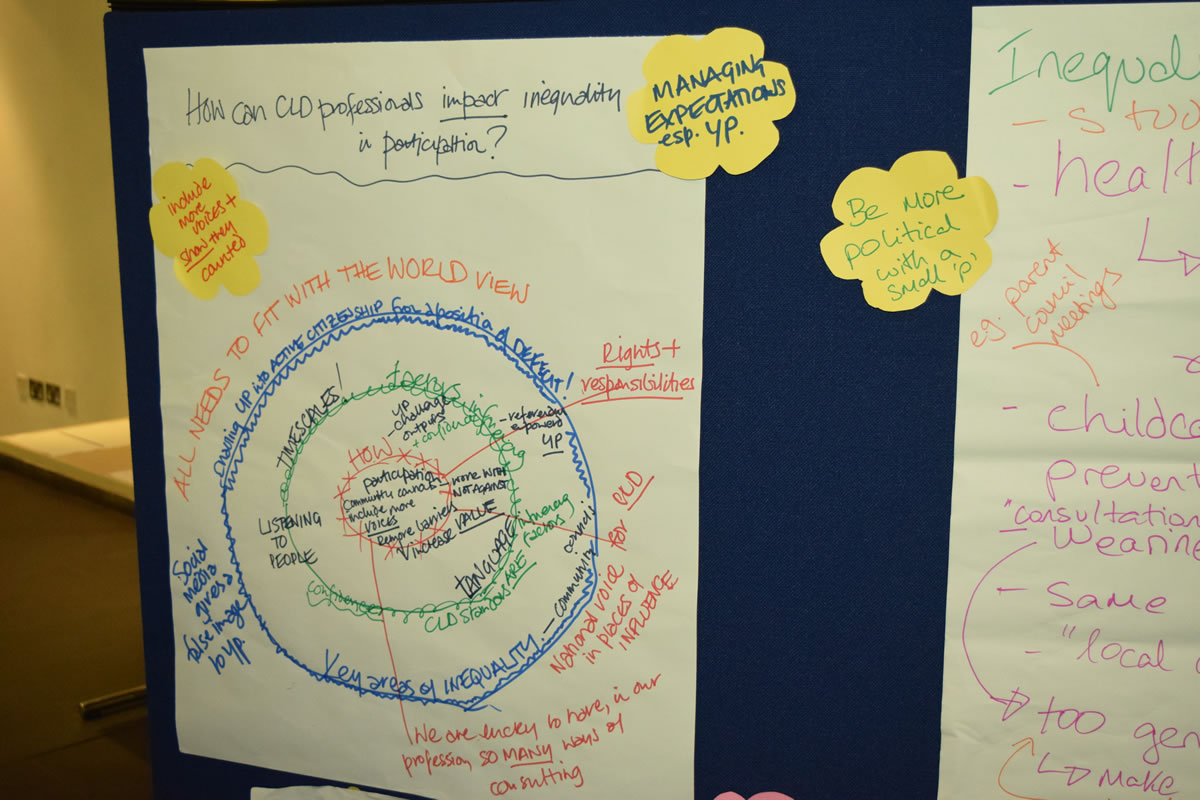 How can CLD professionals impact inequality
in participation?
MANAGING
EXPECTATIONS
esp. YP.
include
more
voices +
show they
counted
ALL NEEDS TO FIT WITH THE WORLD VIEW
YP into ACTIVE CITIZENSHIP from a position of
Rights +
responsibilities
TIMESCALES!
factors
YP
- challenge
outputs
- referendum
YP
HOW
participation
community councils
include more
voices
Remove barriers
increase VALUE
- work WITH
NOT AGAINST
LISTENING
TO
PEOPLE
LANGUAGE
factors
confidence
CLD Standards ARE
Key areas of INEQUALITY. - community councils
Social
media
gives a
false image
to YP.
National voice for CLD
in places of
INFLUENCE
We are lucky to have, in our
profession, SO MANY ways of
consulting
Be more
political
with a
small 'p'
Inequal
- stud
- healt
e.g. parent
council
meetings
- childca
prevent
"consultation
wearine
- Same
- "local
too gen
make